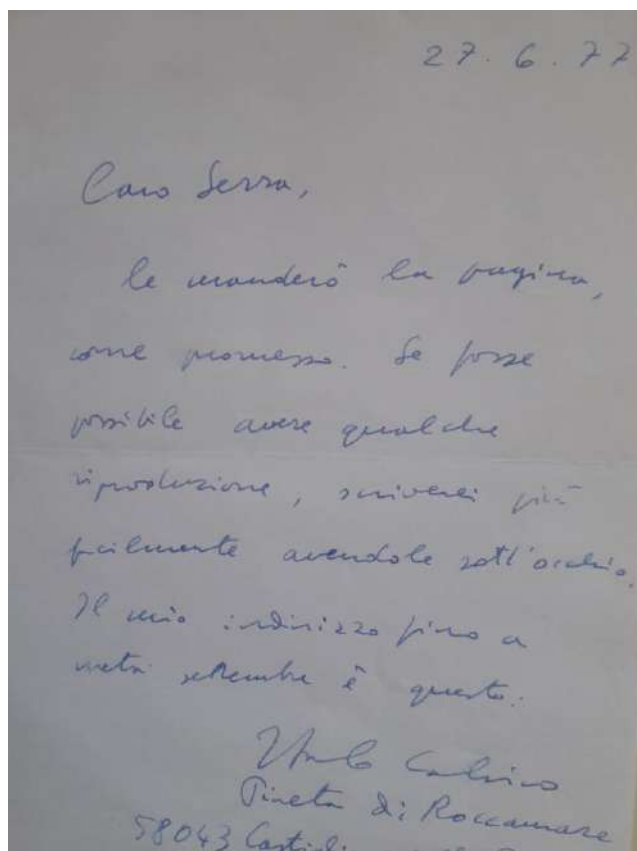 27.6.77
Caro Serra,
le manderò la pagina,
come promesso. Se fosse
possibile avere qualche
riproduzione, scriverei più
facilmente avendole sott'occhio.
Il mio indirizzo fino a
metà settembre è questo.
Italo Calvino
Pineta di Roccamare
58043